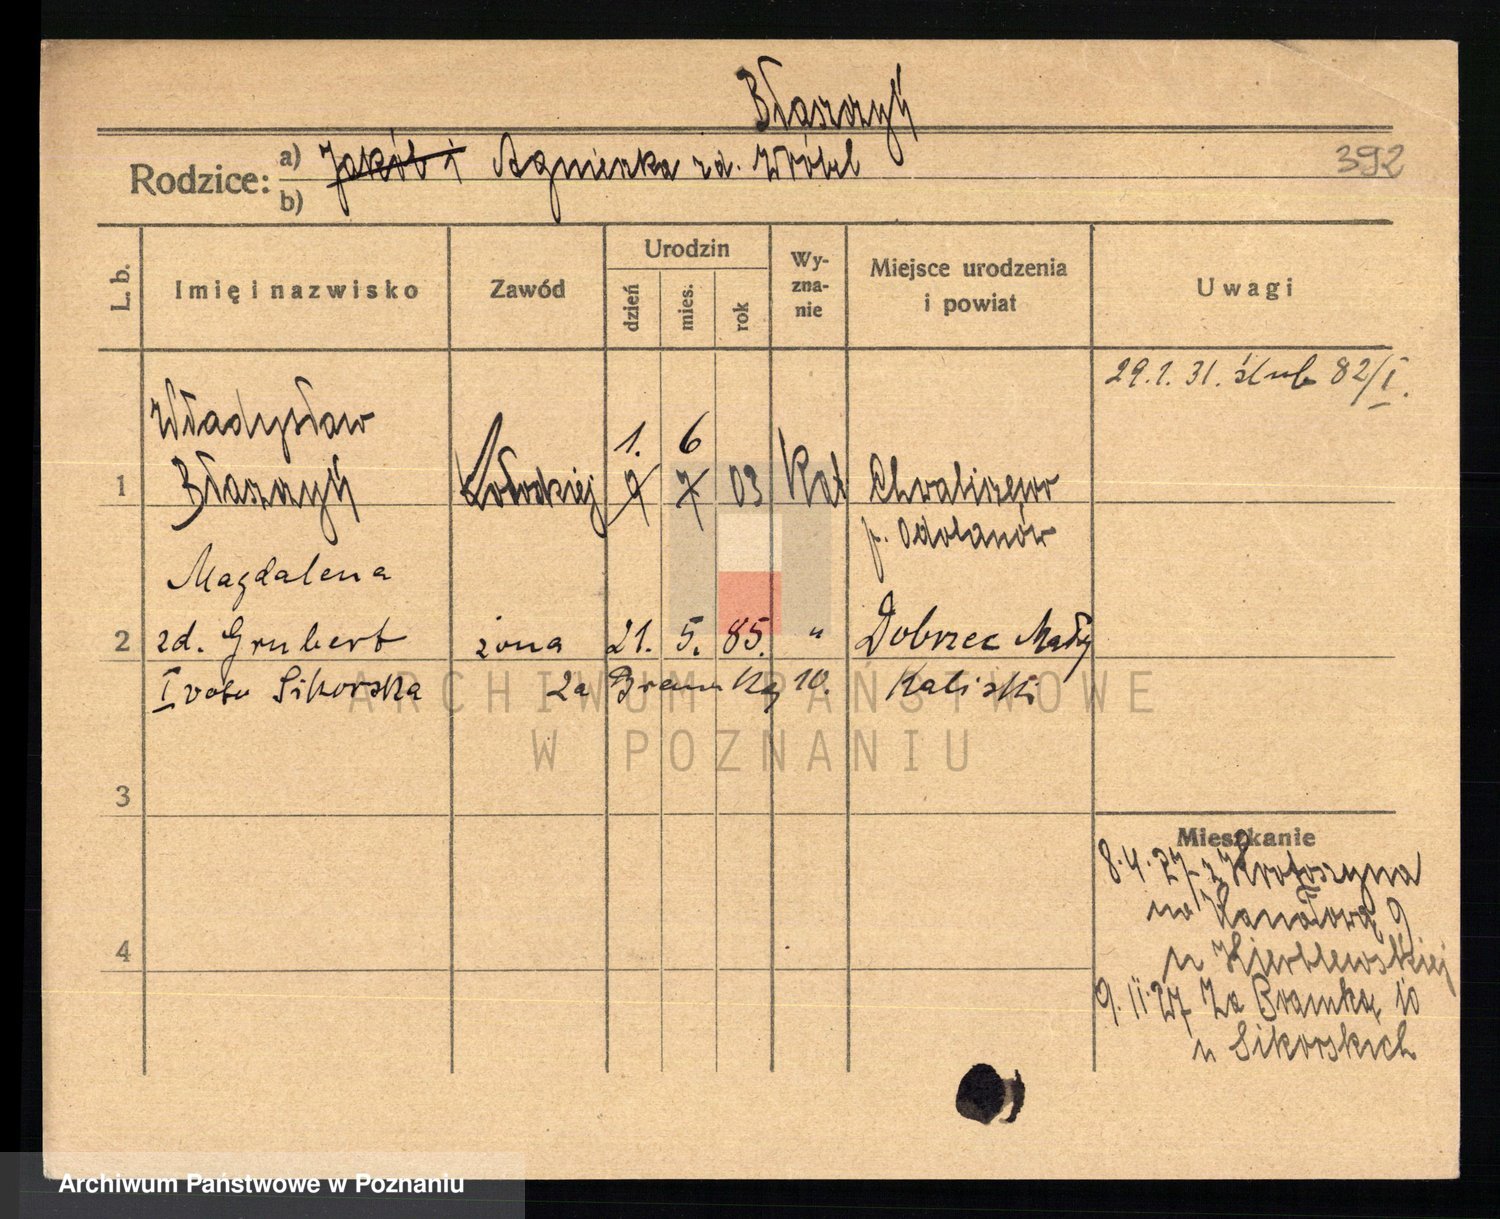 Błaszczyk
Rodzice: a) Jakób i Agnieszka zd. Wróbel
b)
392
L. b. Imię i nazwisko Zawód Urodzin dzień mies. rok Wyznanie Miejsce urodzenia i powiat Uwagi
29.1.31. ślub 82/I.
Władysław
1. 6
1 Błaszczyk 9 7 03 Kat Chwaliszewo
p. Odolanów
Magdalena
2 zd. Grubert żona 21. 5. 85. " Dobrzec Mały
I voto Sikorska Za Bramką 10. Kaliski
ARCHIWUM PAŃSTWOWE
W POZNANIU
3
Mieszkanie
8.4.27 z Krotoszyna
na Kanałową 9
4
9.11.27 Za Bramką 10
u Sikorskich
Archiwum Państwowe w Poznaniu